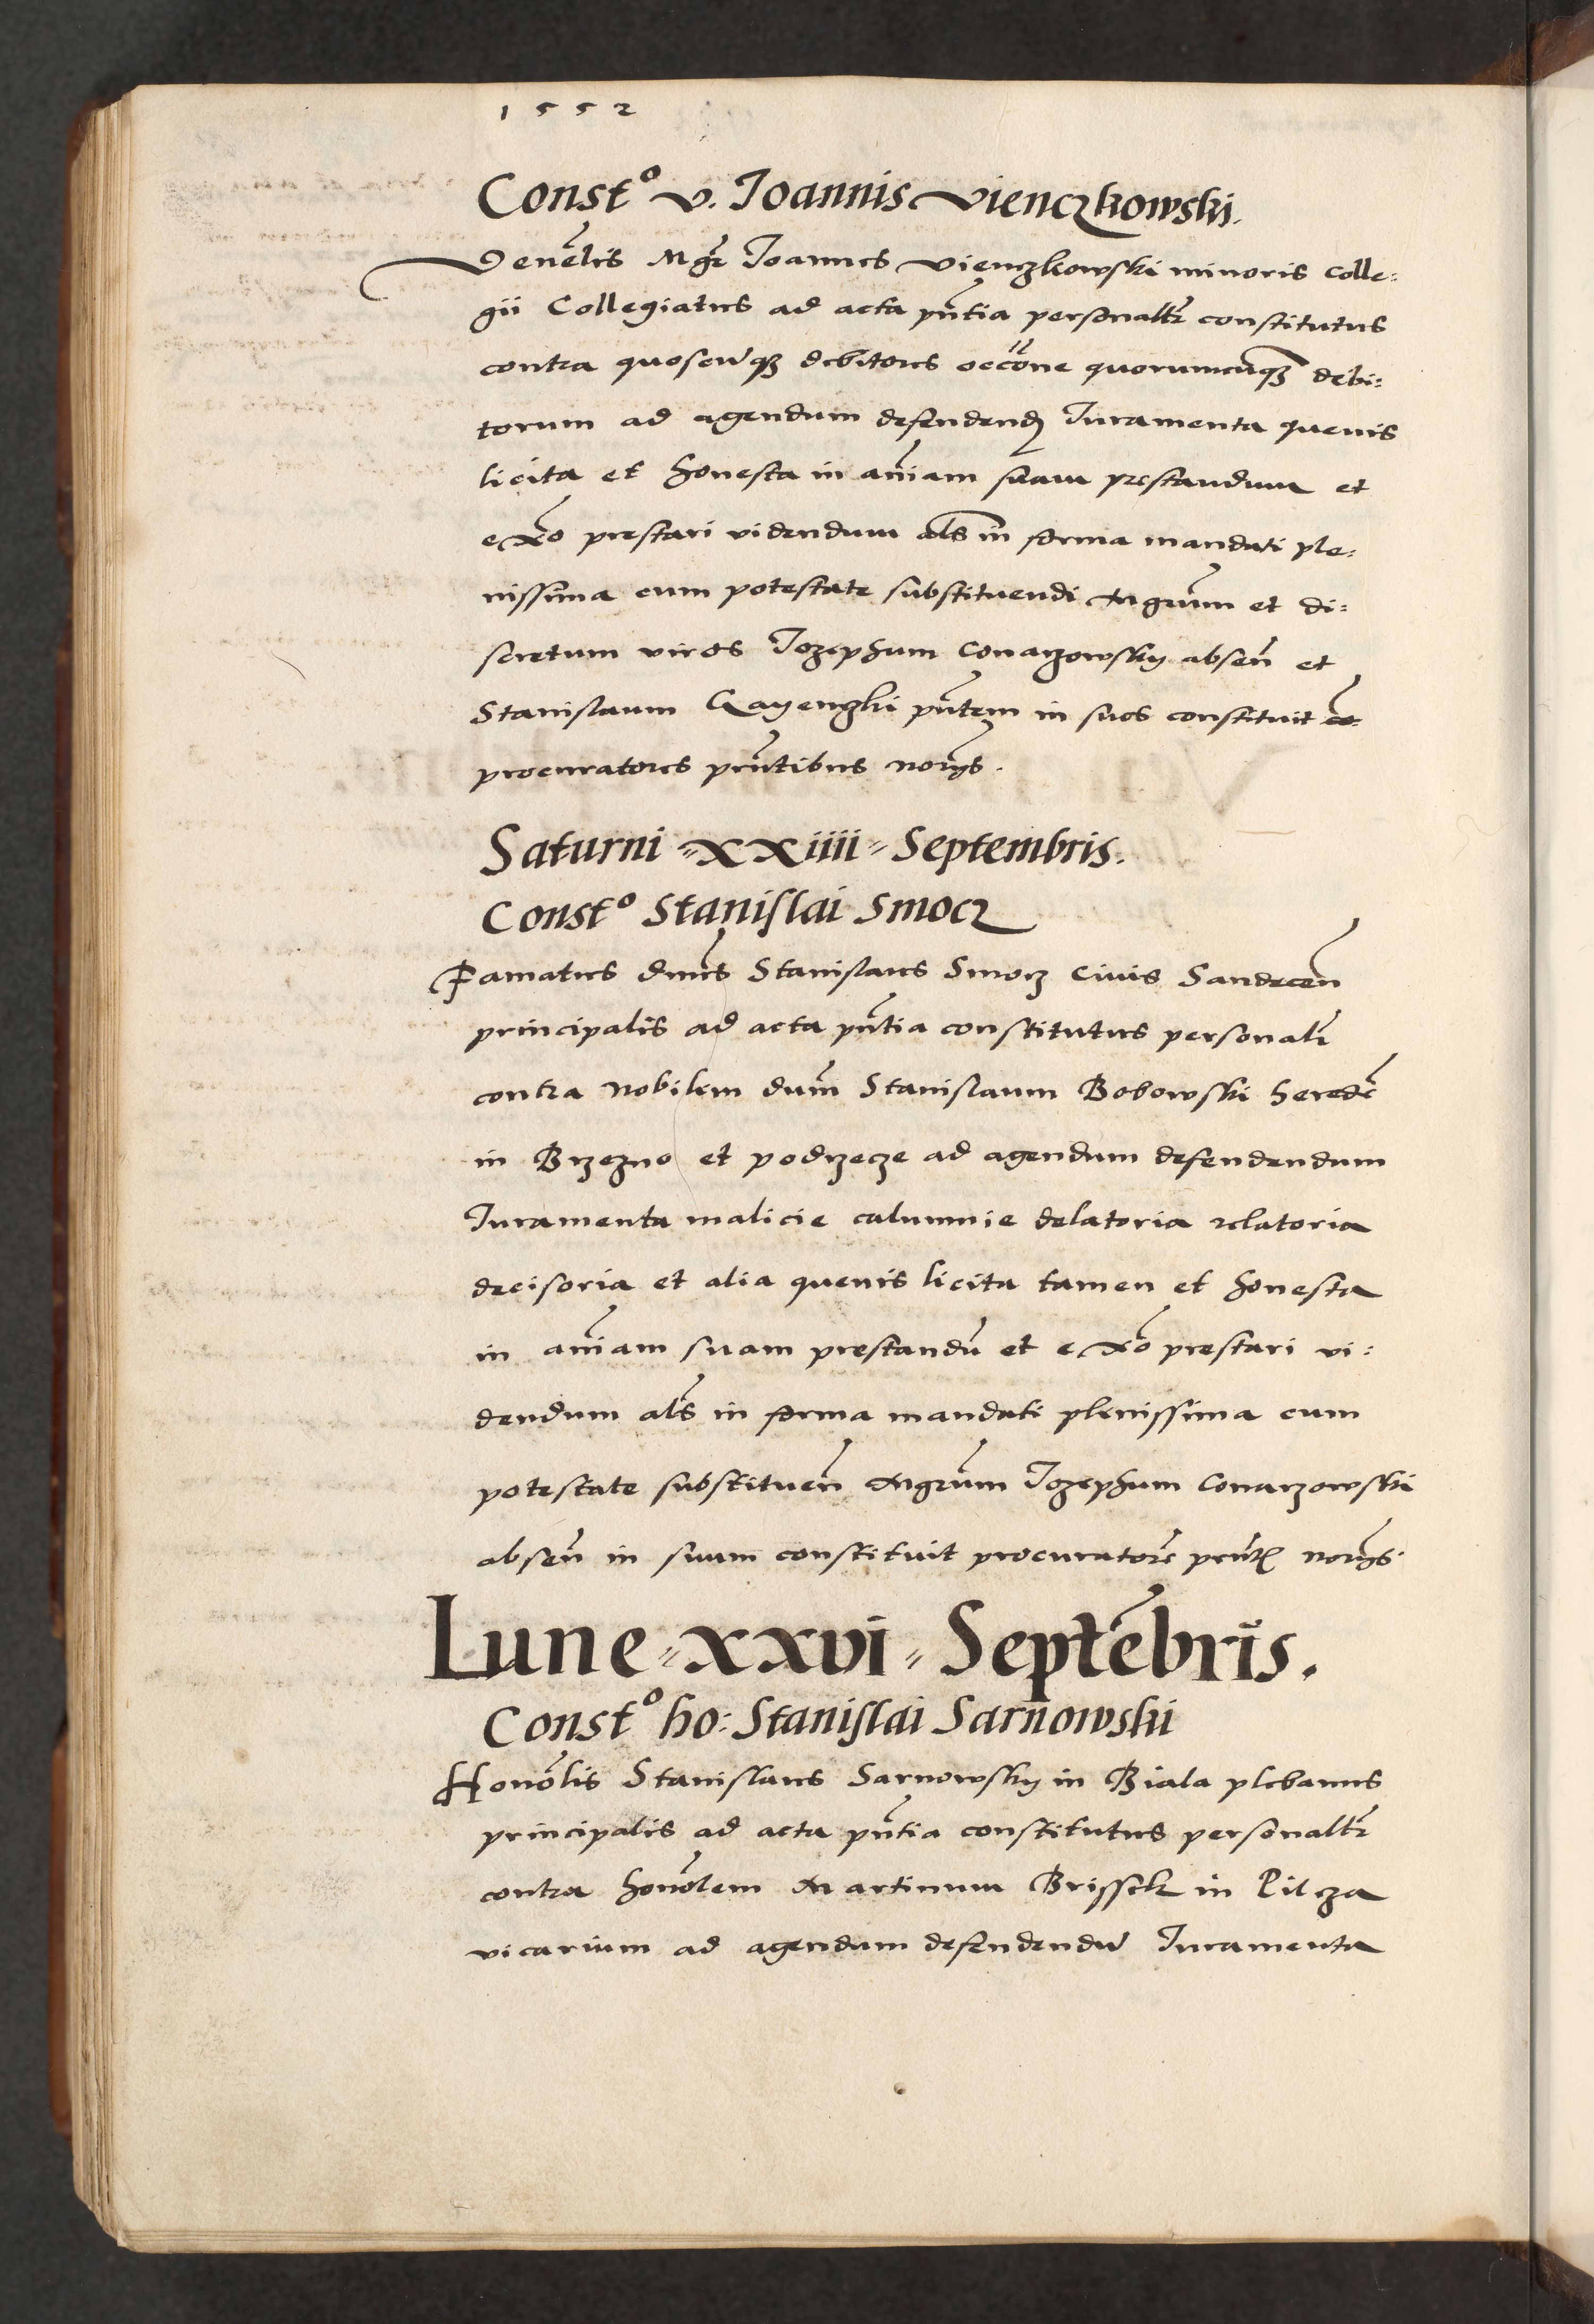 1552
Constº v. Joannis Vienczkowski.
Venēlis Mgr̃ Joannes Vienczkowski minoris Colle:
gii Collegiatus ad acta pñtia personalr̃ constitutus
contra quoscũqz debitores occõne quorumcũqz debi:
torum ad agendum defendend Juramenta quevis
licita et honesta in añiam suam prestandum et
exõ prestari videndum als̃ in forma mandati ple:
nissima cum potestate substituendi Mgrũm et di:
scretum viros Jozephum Conarzowsky abseñ et
Stanislaum pñtem in suos constituit
procuratores pñtibus
Saturni xxiiii Septembris.
Constº Stanislai Smocz
Famatus dñus Stanislaus Smocz Civis Sandeceñ
principalis ad acta pñtia constitutus personalr̃
contra Nobilem dñum Stanislaum Bobowski heredẽ
in Brzezno et podrzecze ad agendum defendendum
Juramenta malicie calumnie delatoria relatoria
decisoria et alia quevis licita tamen et honesta
in añiam suam prestandũ et exõ prestari vi:
dendum als̃ in forma mandati plenissima cum
potestate substitueñ Mgrũm Jozephum Conarzowski
abseñ in suum constituit procuratorẽ
Lune xxvi Septẽbris.
Constº ho: Stanislai Sarnowski
Honõlis Stanislaus Sarnowsky in Biala plebanus
principalis ad acta pñtia constitutus personalr̃
contra honõlem Martinum Brissek in Pilcza
vicarium ad agendum defendendũ Juramenta